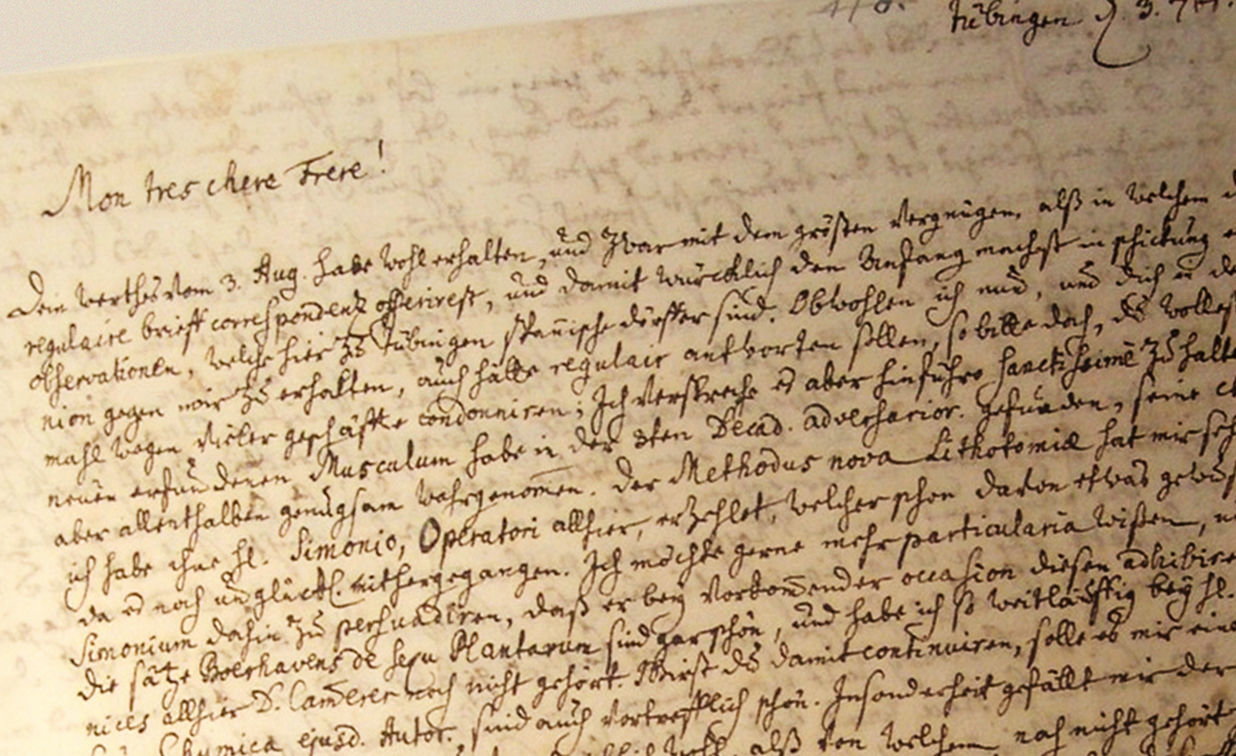 Tübingen d. 3. 7br.
Mon tres chere Frere!
Dein werthes vom 3. Aug. habe wohl erhalten, und zwar mit dem größten Vergnügen, alß in welchem
regulaire brieff correspondenz offerirest, und damit würcklich den Anfang machst in schickung
observationen, welche hier zu Tübingen spanische dörffer sind. Obwohlen ich nun, und dich in
nion gegen mir zu erhalten, auch hätte regulair antworten sollen, so bitte doch, du wollest
mahl wegen vieler geschäffte condonniren; Ich verspreche es aber hinführo zu halten
neuen erfundenen Musculum habe in der 3ten Decad. adversarior. gefunden, seine
aber allenthalben genugsam wahrgenomen. Der Methodus nova Lithotomiæ hat mir
ich habe ihne hl. Simonio, Operatori allhier, erzehlet, welcher schon davon etwas
da es noch unglückl. mithergegangen. Ich möchte gerne mehr particularia wißen,
Simonium dahin zu persuadiren, daß er bey vorkomender occasion diesen
die sätze Boerhavens de sexu Plantarum sind gar schön, und habe ich so weitläuffig bey hl.
allhier D. Camerer noch nicht gehört. Wirst du damit continuiren, solle es mir
Chymica ejusd. Autor. sind auch vortrefflich schön. Insonderheit gefällt mir der
alß von welchem noch nicht gehört